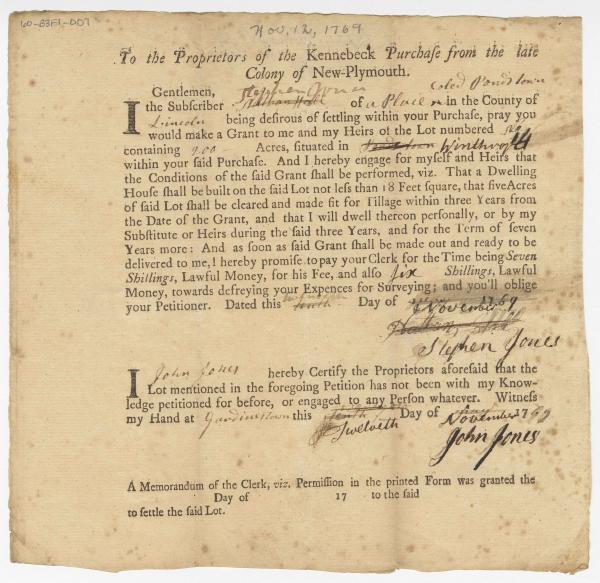 60-83F1-007
Nov. 12, 1769
To the Proprietors of the Kennebeck Purchase from the late
Colony of New-Plymouth.
Gentlemen, Stephen Jones Coled Pondstown
I the Subscriber Nathan Hall of a Place in the County of
Lincoln being desirous of settling within your Purchase, pray you
would make a Grant to me and my Heirs of the Lot numbered
containing 200 Acres, situated in Pondtown Winthrop
within your said Purchase. And I hereby engage for myself and Heirs that
the Conditions of the said Grant shall be performed, viz. That a Dwelling
House shall be built on the said Lot not less than 18 Feet square, that five Acres
of said Lot shall be cleared and made fit for Tillage within three Years from
the Date of the Grant, and that I will dwell thereon personally, or by my
Substitute or Heirs during the said three Years, and for the Term of seven
Years more: And as soon as said Grant shall be made out and ready to be
delivered to me, I hereby promise to pay your Clerk for the Time being Seven
Shillings, Lawful Money, for his Fee, and also six Shillings, Lawful
Money, towards defreying your Expences for Surveying; and you'll oblige
your Petitioner. Dated this tenth Day of November 1769
Nathan Hall
Stephen Jones
I John Jones hereby Certify the Proprietors aforesaid that the
Lot mentioned in the foregoing Petition has not been with my Know-
ledge petitioned for before, or engaged to any Person whatever. Witness
my Hand at Gardinerstown this tenth Day of November 1769
Twelveth
John Jones
A Memorandum of the Clerk, viz. Permission in the printed Form was granted the
Day of 17 to the said
to settle the said Lot.